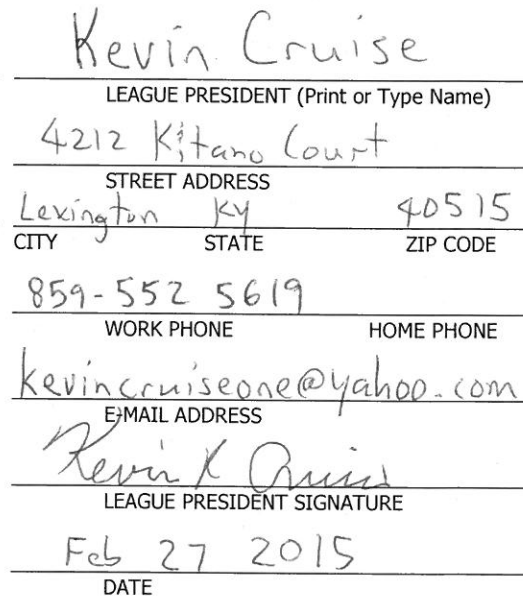 Kevin Cruise
LEAGUE PRESIDENT (Print or Type Name)
4212 Kitano Court
STREET ADDRESS
Lexington Ky 40515
CITY STATE ZIP CODE
859-552 5619
WORK PHONE HOME PHONE
kevincruiseone@yahoo.com
E-MAIL ADDRESS
Kevin K Cruise
LEAGUE PRESIDENT SIGNATURE
Feb 27 2015
DATE